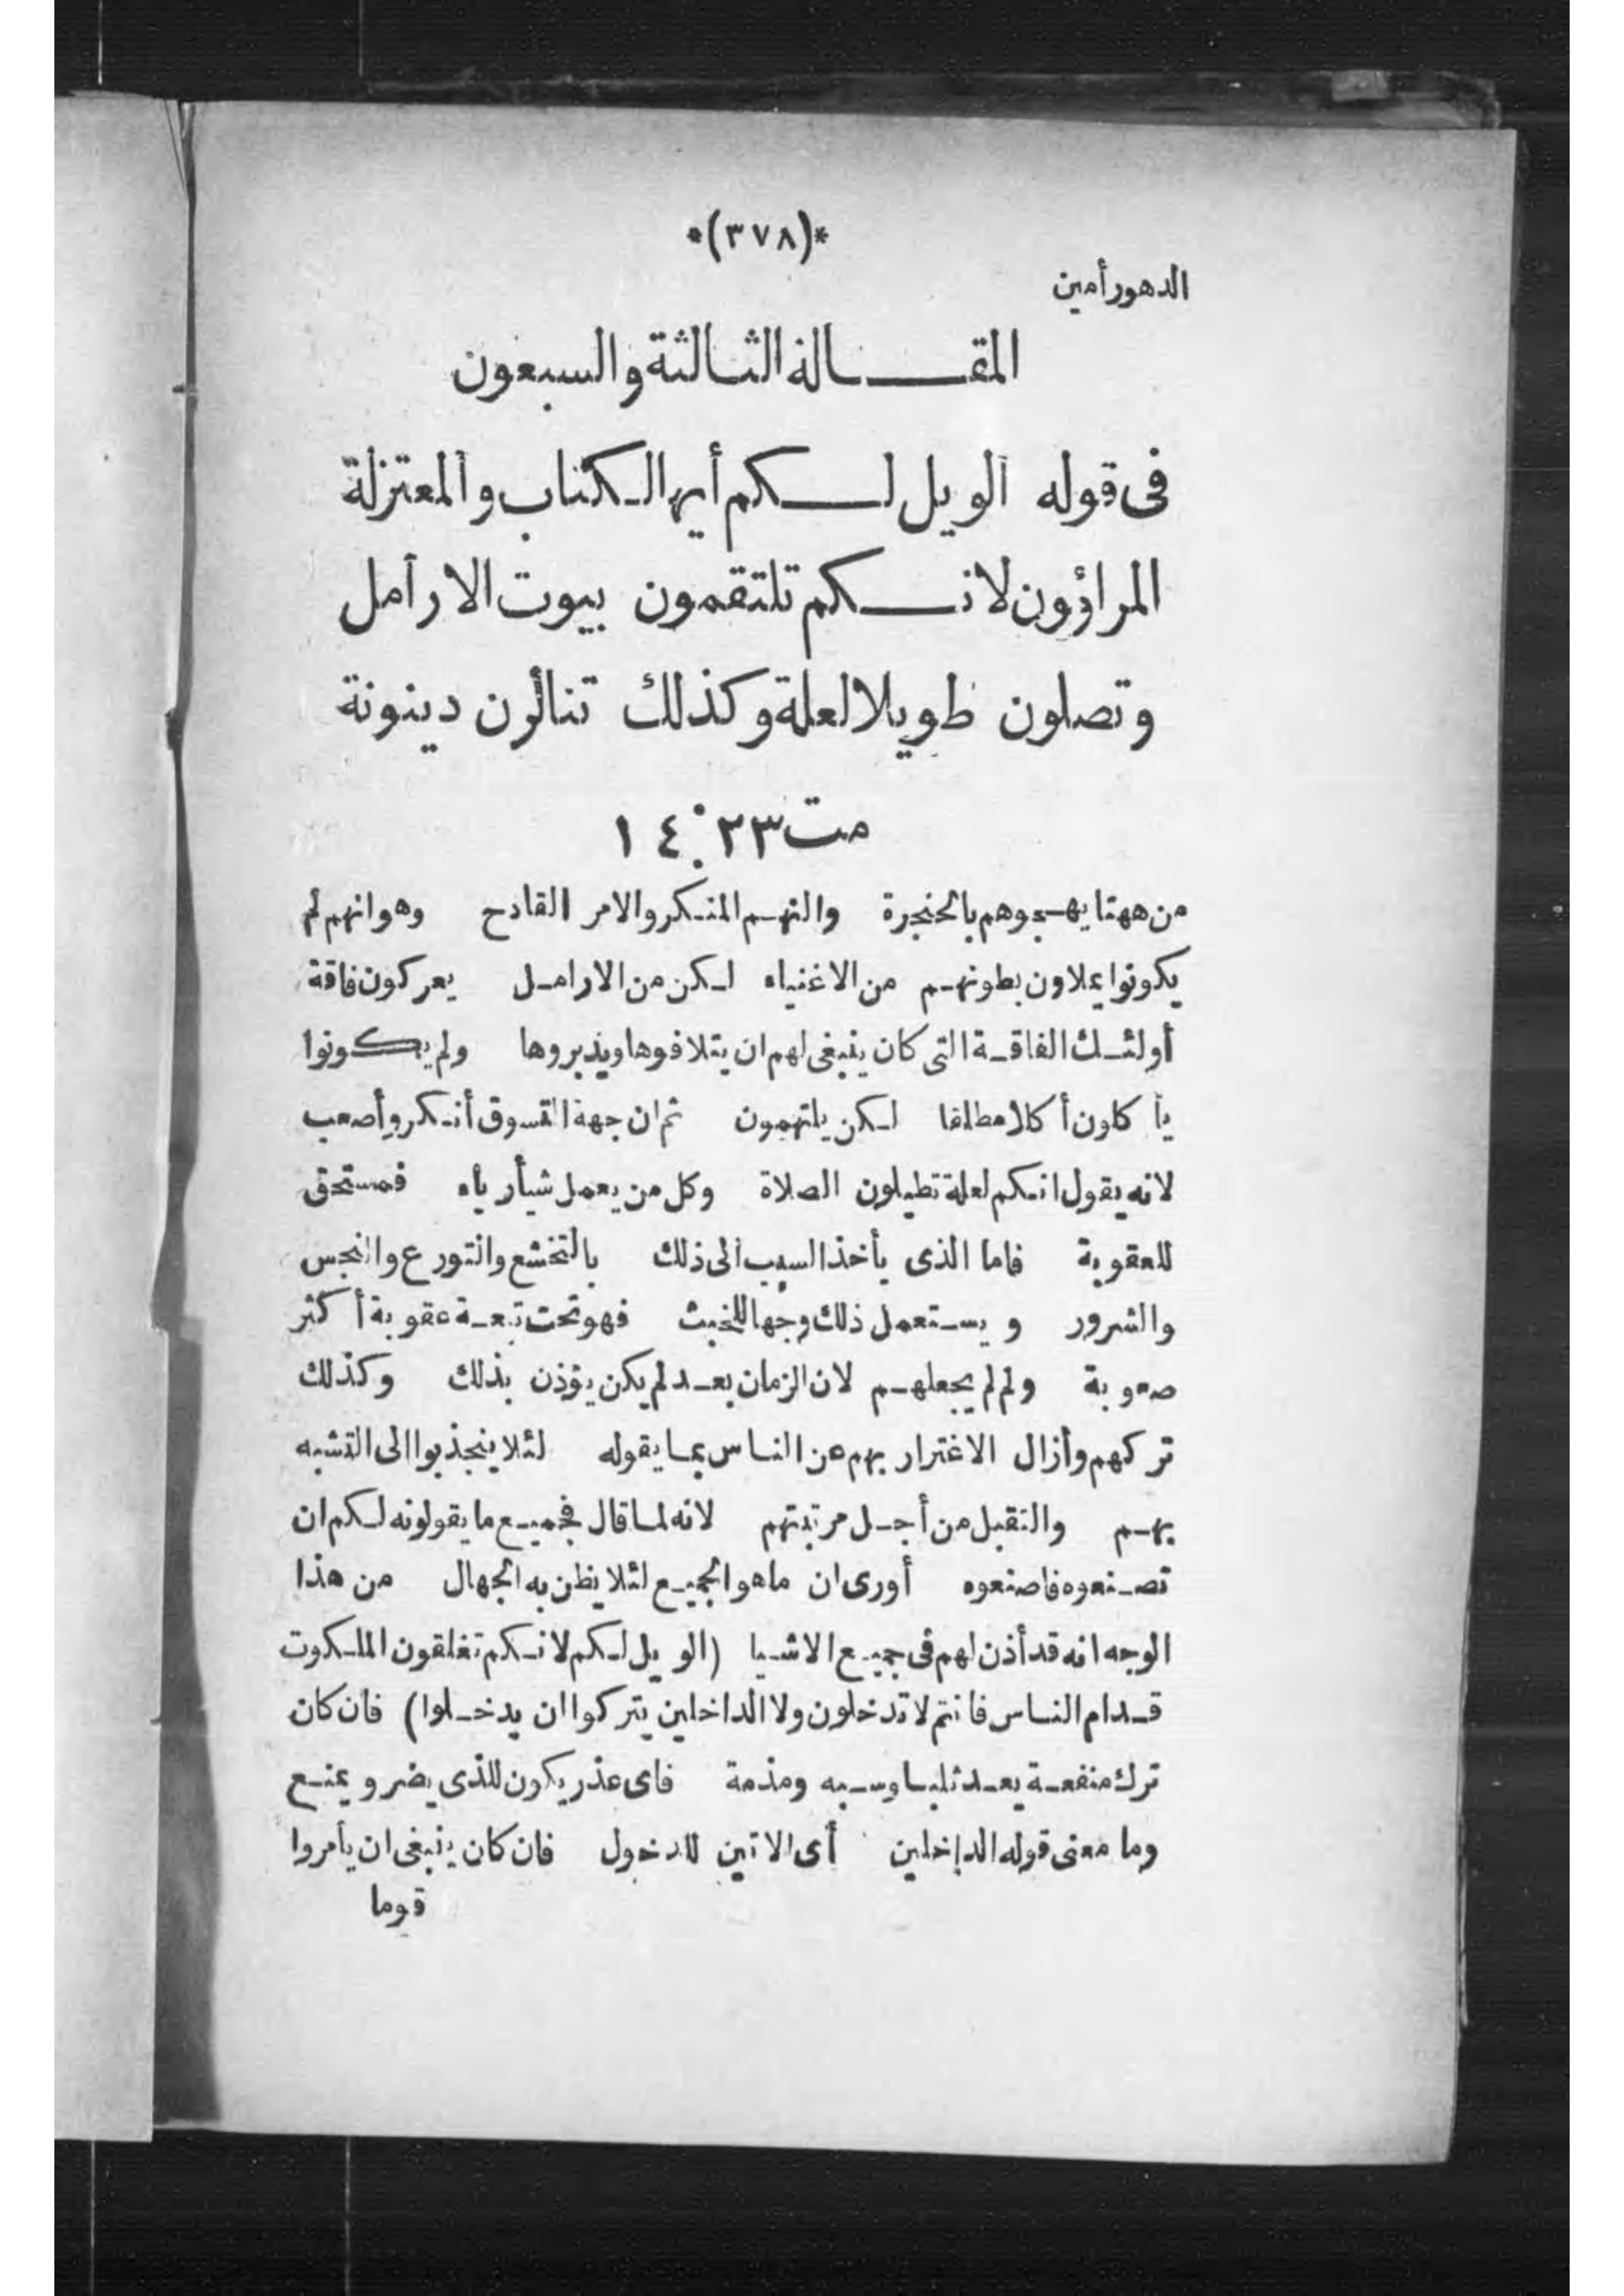 *(٣٧٨)*
الدهور أمين
المقالة الثالثة والسبعون
فى قوله الويل لكم أيها الكتاب والمعتزلة
المراؤون لانكم تلتقمون بيوت الارامل
وتصلون طويلا لعلة وكذلك تنالون دينونة
مت ٢٣ : ١٤
من ههنا يهجوهم بالحنجرة والنهم المنكر والامر القادح وهو انهم لم
يكونوا يملاون بطونهم من الاغنياء لكن من الارامل يعركون فاقة
أولئك الفاقة التى كان ينبغى لهم ان يتلافوها ويذبروها ولم يكونوا
يأكلون أكلا مطلقا لكن يلتهمون ثم ان جهة القسوق أنكر وأصعب
لانه يقول انكم لعلة تطيلون الصلاة وكل من يعمل شيأ رياء فمستحق
للعقوبة فاما الذى يأخذ السبب الى ذلك بالتخشع والتورع والنجس
والشرور ويستعمل ذلك وجها للخبث فهو تحت تبعة عقوبة أكثر
صعوبة ولم لم يجعلهم لان الزمان بعد لم يكن يؤذن بذلك وكذلك
تركهم وأزال الاغترار بهم عن الناس بما يقوله لئلا ينجذبوا الى التشبه
بهم والتقبل من أجل مرتبتهم لانه لما قال فجميع ما يقولونه لكم ان
تصنعوه فاصنعوه أورى ان ما هو الجميع لئلا يظن به الجهال من هذا
الوجه انه قد أذن لهم فى جميع الاشيا (الويل لكم لانكم تغلقون الملكوت
قدام الناس فانتم لا تدخلون ولا الداخلين يتركوا ان يدخلوا) فان كان
ترك منفعة يعد ثلبا وسبه ومذمة فاى عذر يكون للذى يضر ويمنع
وما معنى قوله الداخلين أى الاتين للدخول فان كان ينبغى ان يأمروا
قوما